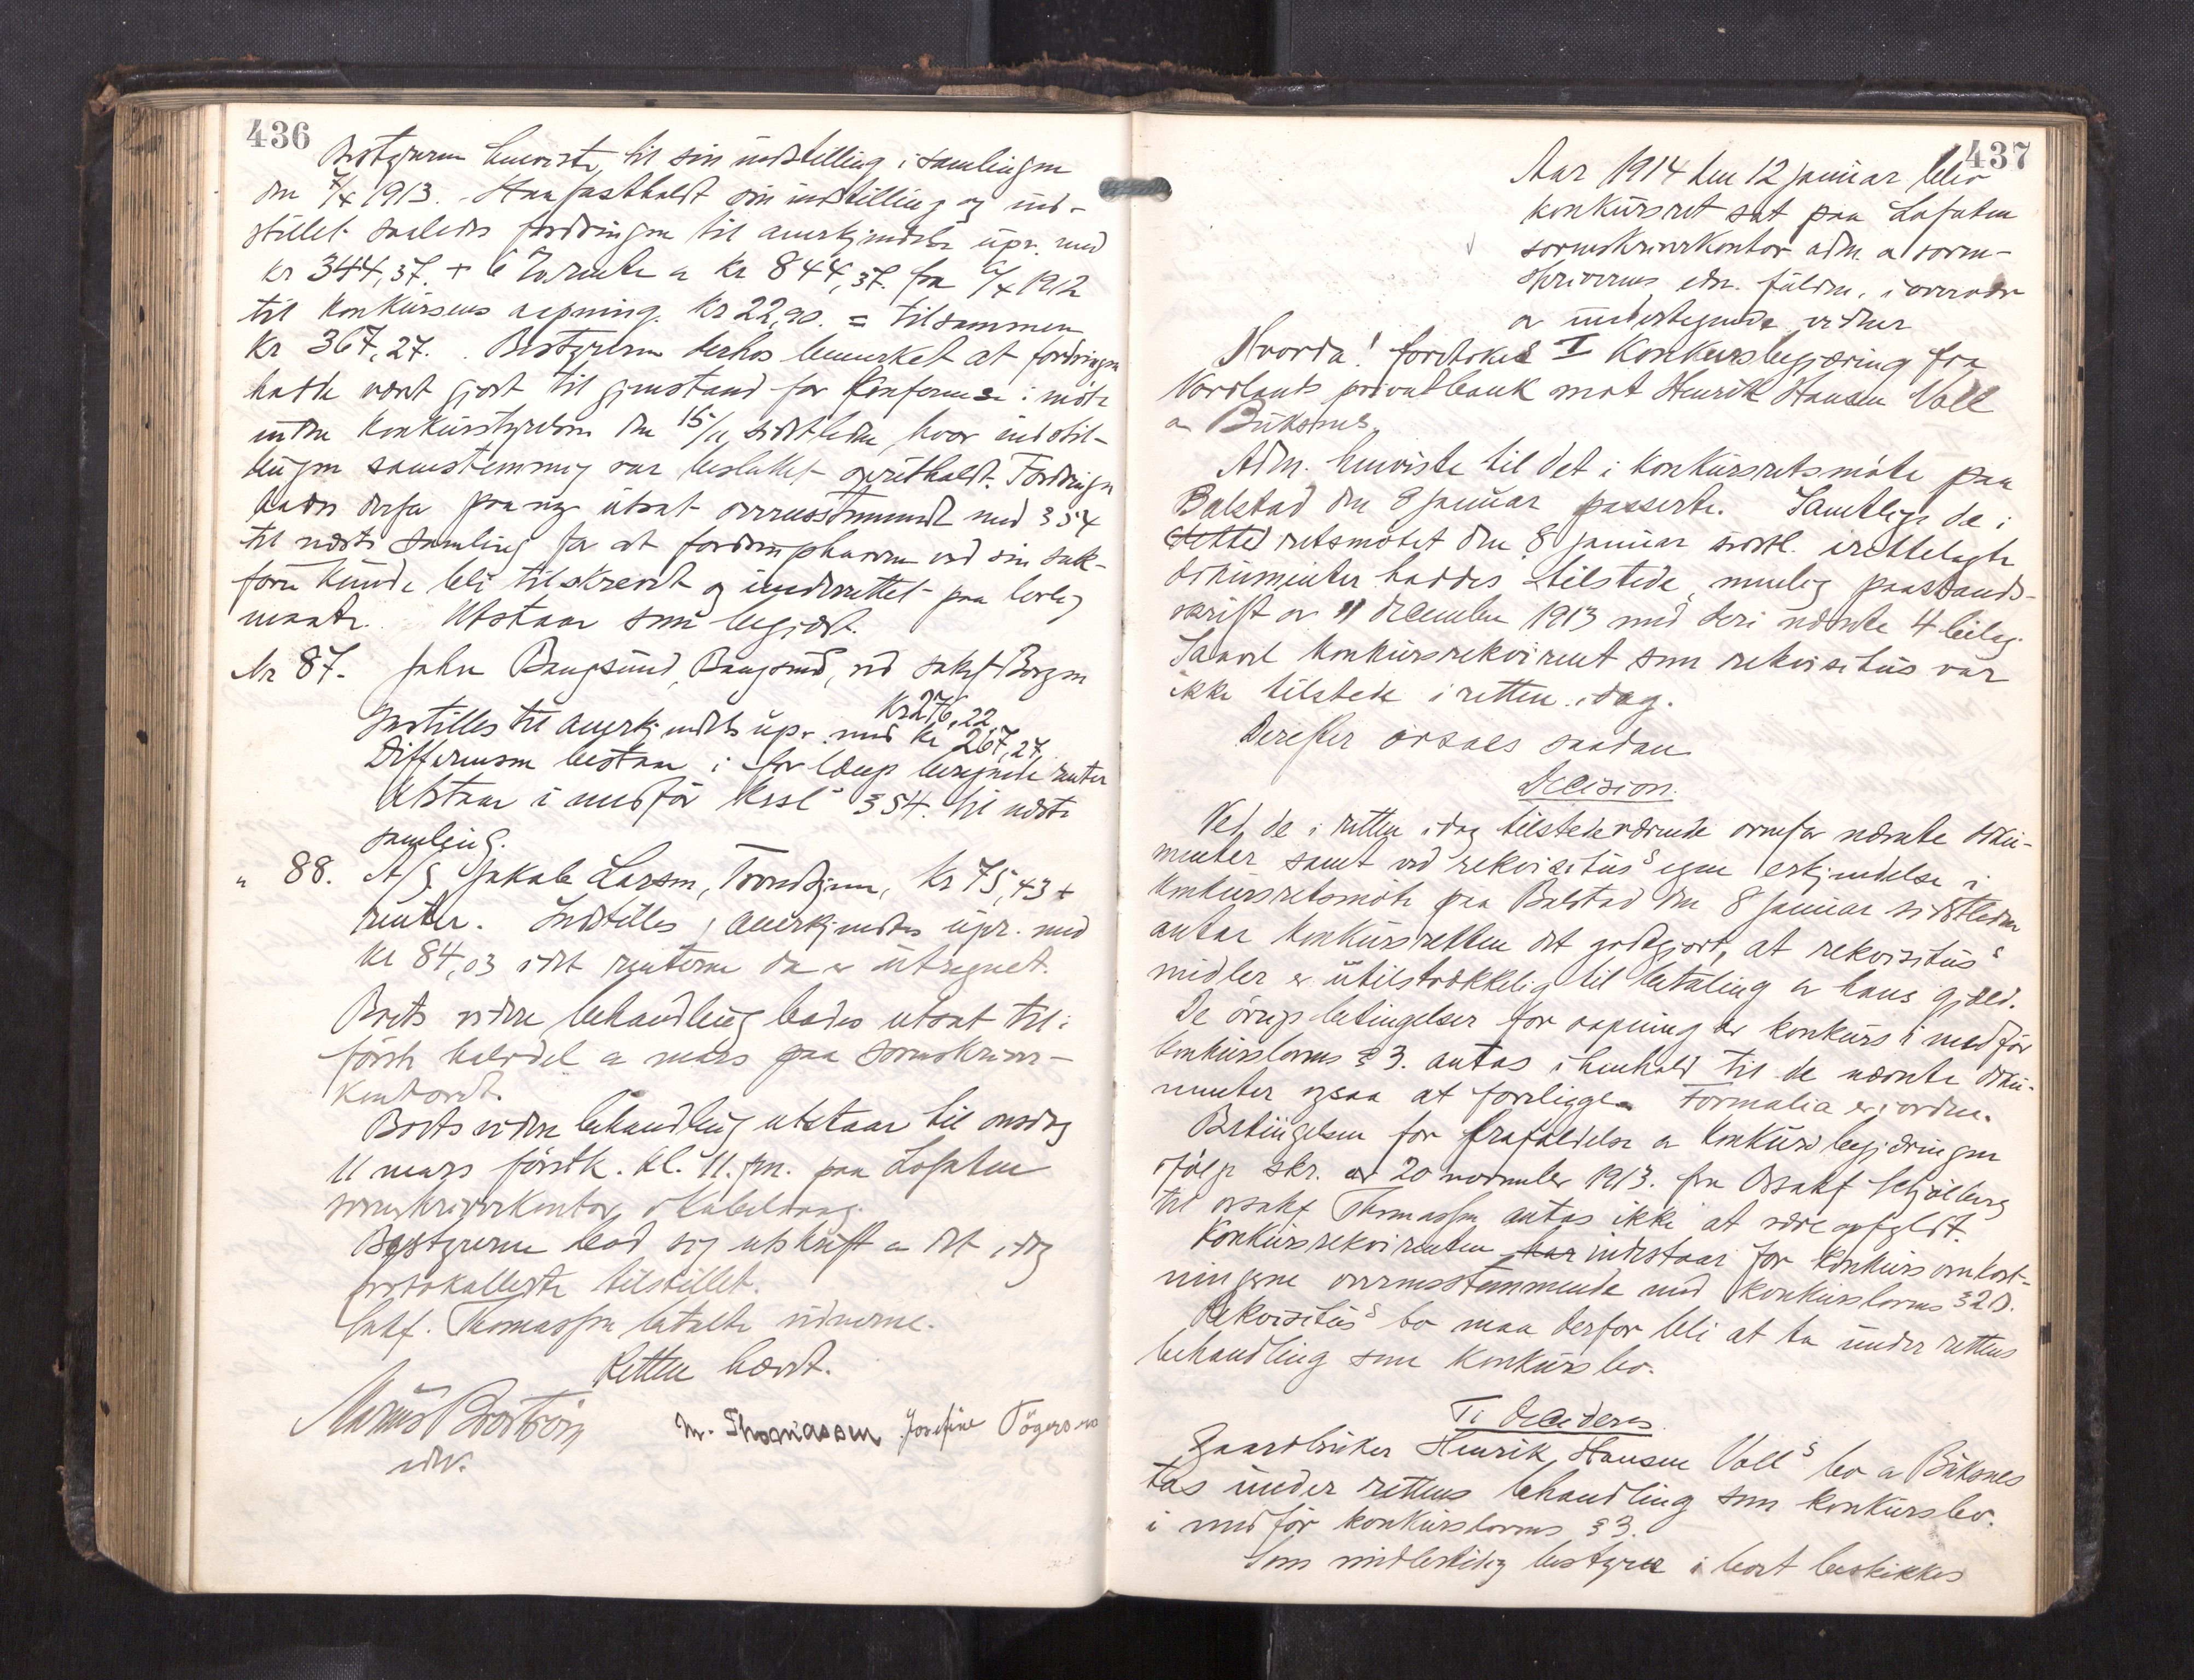 436
Bestyreren henviste til sin indstilling i samlingen
den 7/x 1913. Han fastholdt sin indstilling og ind-
stillet saaledes fordringen til anerkjendelse upr. med
kr 344,37. + 6 % rente a kr 844,37. fra 1912
til konkursens aapning. kr 22,90. = tilsammen
kr 367,27. Bestyreren derhos bemerket at fordringen
hadde været gjort til gjenstand for konferense i møte
inden konkursstyrelsen den 15/11 sidstleden, hvor indstil-
lingen samstemmig var besluttet opretholdt. Fordringen
utsat overensstemmende med § 54
til næste samling for at fordringshaveren ved sin sak-
fører kunde bli tilskrevet og underrettet paa lovlig
maate. Utstaar som begjært.
Nr 87. John Baugsund, Baugsund, ved sakf Borgen
kr 276,22
Indstilles til anerkjendelse upr. med kr 267,27,
Differensen bestaar i for længe beregnede renter
Utstaar i medfør kksl § 54. til næste
samling.
" 88. A/S Jakob Larsen, Trondhjem, kr 75,43 +
renter. Indstilles anerkjendes upr. med
kr 84,03 idet renterne da er utregnet.
Boets videre behandling bades utsat til i
første halvdel a mars paa sorenskriver-
kontoret.
Boets videre behandling utstaar til onsdag
11 mars førstk. kl. 11. fm. paa Lofoten
sorenskriverkontor, i Kabelvaag.
Bestyreren bad sig utskrift a det idag
protokollerte tilstillet.
Sakf. Thomassen betalte vidnerne.
Retten hævet.
M. Thomassen Josefine
edv.
437
Aar 1914 den 12 januar blev
konkursret sat paa Lofoten
sorenskriverkontor adm. a soren-
skriverens edv. fuldm. i overvær
a undertegnede vidner
Hvorda! foretokes I Konkursbegjæring fra
Nordlands privatbank mot Henrik Hansen Voll
a Buksnes.
Adm. henviste til det i konkursretsmøte paa
Balstad den 8 januar passerte. Samtlige de i
dette retsmøtet den 8 januar sidstl. irettelagte
dokumenter haddes tilstede, nemlig paastands-
skrift av 11 december 1913 med deri nævnte 4 bilag.
Saavel konkursrekvirent som rekvisitus var
ikke tilstede i retten idag.
Derefter avsaes saadan
Decision.
Ved de i retten idag tilstedeværende ovenfor nævnte doku-
menter samt ved rekvisitus's egen erkjendelse i
konkursretsmøte paa Balstad den 8 januar sidstleden
antar konkursretten det godtgjort, at rekvisitus's
midler er utilstrækkelig til betaling av hans gjæld.
De øvrige betingelser for aapning av konkurs i medfør
konkurslovens § 3. antas i henhold til de nævnte doku-
menter ogsaa at foreligge. Formalia er i orden.
Betingelsen for frafaldelse a konkursbegjæringen
ifølge skr. av 20 november 1913. fra Osakf Schjølberg
til osakf Thomassen antas ikke at være opfyldt.
Konkursrekvirenten har indestaar for konkursomkost-
ningerne overensstemmende med konkurslovens § 20.
Rekvisitus's bo maa derfor bli at ta under rettens
behandling som konkursbo.
Ti decideres
Gaardbruker Henrik Hansen Voll's bo a Buksnes
tas under rettens behandling som konkursbo.
i medfør konkurslovens § 3.
Som midlertidig bestyrer i boet beskikkes